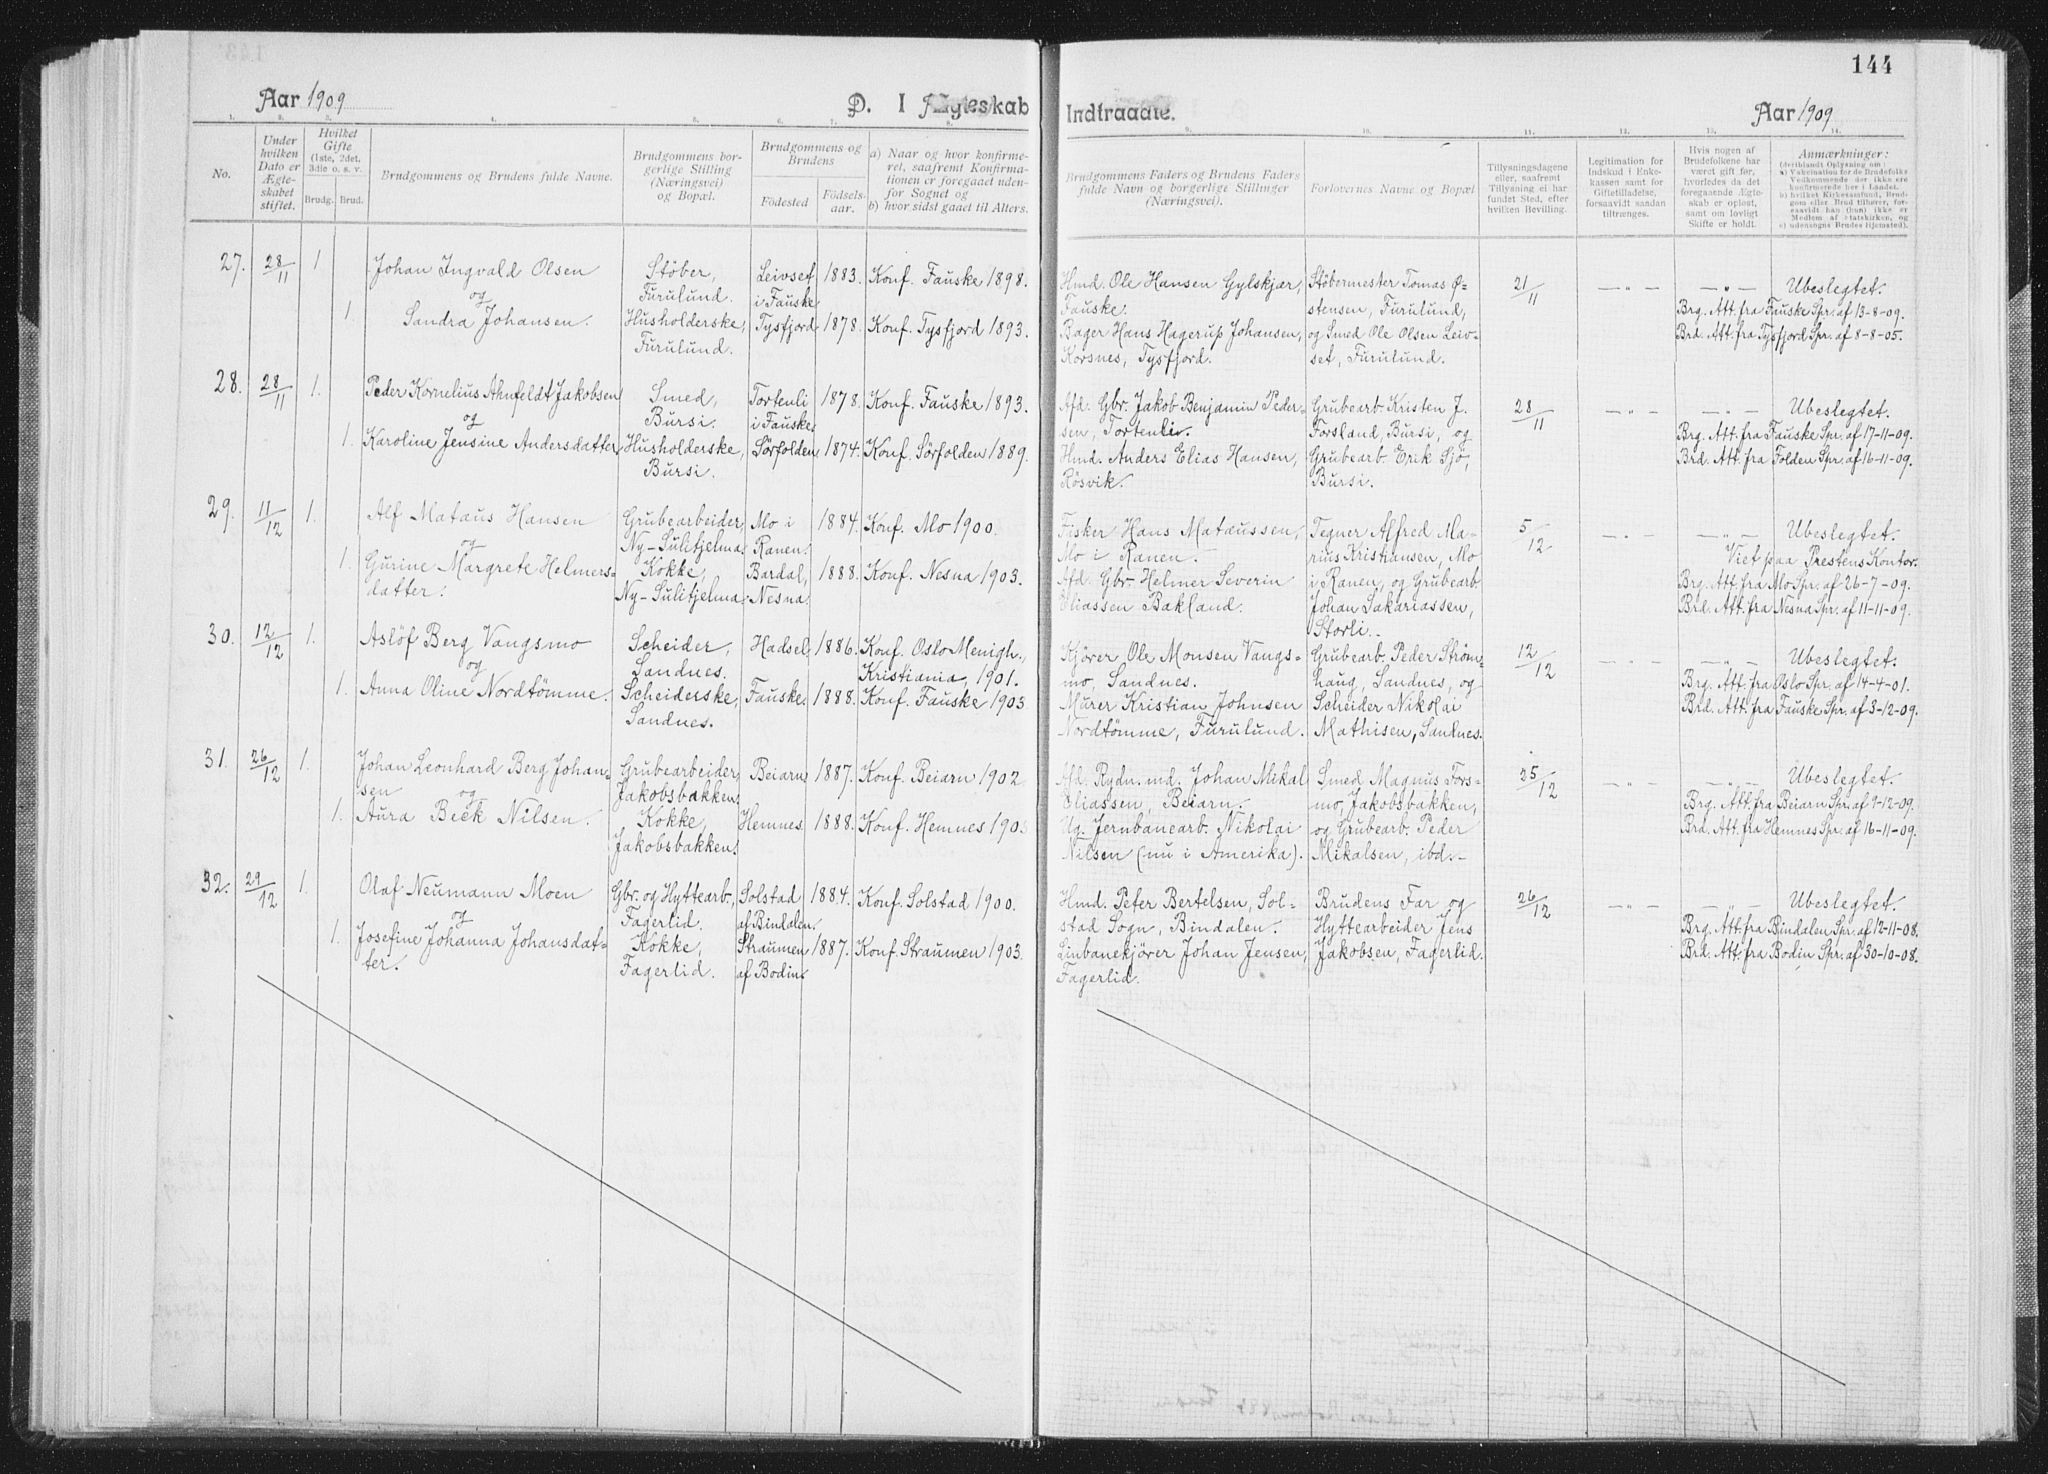 144
Aar 1909
D. I Ægteskab
Indtraadte.
Aar 1909
1. 2. 3. 4. 5. 6. 7. 8. 9. 10. 11. 12. 13. 14.
No.
Under hvilken Dato er Ægteskabet stiftet.
Hvilket Gifte (1ste, 2det, 3die o. s. v.
Brudg. Brud.
Brudgommens og Brudens fulde Navne.
Brudgommens borgerlige Stilling (Næringsvei) og Bopæl.
Brudgommens og Brudens
Fødested
Fødselsaar.
a) Naar og hvor konfirmeret, saafremt Konfirmationen er foregaaet udenfor Sognet og
b) hvor sidst gaaet til Alters.
Brudgommens Faders og Brudens Faders fulde Navn og borgerlige Stillinger (Næringsvei).
Forlovernes Navne og Bopæl
Tillysningsdagene eller, saafremt Tillysning ei har fundet Sted, efter hvilken Bevilling.
Legitimation for Indskud i Enkekassen samt for Giftetilladelse, forsaavidt saadan tiltrænges.
Hvis nogen af Brudefolkene har været gift før, hvorledes da det foregaaende Ægteskab er opløst, samt om lovligt Skifte er holdt.
Anmærkninger:
(deriblandt Oplysning om:
a) Vakcination for de Brudefolks Vedkommende der ikke ere konfirmerede her i Landet.
b) hvilket Kirkesamfund, Brudgom eller Brud tilhører, forsaavidt han (hun) ikke er Medlem af Statskirken, og
c) udensogns Brudes Hjemsted).
27. 28/11 1 Johan Ingvald Olsen Støber, Leivset 1883. Konf. Fauske 1898.
og Furulund. i Fauske
1 Sandra Johansen. Husholderske, Tysfjord 1878. Konf. Tysfjord 1893.
Furulund.
Hmd. Ole Hansen Gylskjær, Støbermester Tomas Ø- 21/11 — „ — — „ — Ubeslegtet.
Fauske. stensen, Furulund, Brg. Att. fra Fauske Spr. af 13-8-09.
Bager Hans Hagerup Johansen, og Smed Ole Olsen Leiv- Brd. Att. fra Tysfjord Spr. af 8-8-05.
Korsnes, Tysfjord. set, Furulund.
28. 28/11 1. Peder Kornelius Ahnfeldt Jakobsen Smed, Tortenli 1878. Konf. Fauske 1893.
og Bursi. i Fauske
1. Karoline Jensine Andersdatter, Husholderske, Sørfolden 1874. Konf. Sørfolden 1889.
Bursi.
Afd. Gbr. Jakob Benjamin Peder- Grubearb. Kristen J. 28/11 — „ — — „ — Ubeslegtet.
sen, Tortenli. Forsland, Bursi, og Brg. Att. fra Fauske Spr. af 17-11-09.
Hmd. Anders Elias Hansen, Grubearb. Erik Sjø, Brd. Att. fra Folden Spr. af 16-11-09.
Røsvik. Bursi.
29. 11/12 1. Alf Mataus Hansen Grubearbeider, Mo i 1884. Konf. Mo 1900.
og Ny-Sulitjelma. Ranen.
1. Gurine Margrete Helmers- Kokke, Bardal, 1888. Konf. Nesna 1903.
datter. Ny-Sulitjelma. Nesna.
Fisker Hans Matæussen, Tegner Alfred Ma- 5/12 — „ — — „ — Ubeslegtet.
Mo i Ranen. rius Kristiansen, Mo Viet paa Prestens Kontor.
Afd. Gbr. Helmer Severin i Ranen, og Grubearb. Brg. Att. fra Mo Spr. af 26-7-09.
Eliassen Bakland. Johan Sakariassen, Brd. Att. fra Nesna Spr. af 11-11-09.
Storli.
30. 12/12 1. Asløf Berg Vangsmo Scheider, Hadsel, 1886. Konf. Oslo Menigh.,
og Sandnes. Kristiania, 1901.
1. Anna Oline Nordtømme. Scheiderske, Fauske, 1888. Konf. Fauske 1903
Sandnes.
Kjører Ole Monsen Vangs- Grubearb. Peder Strøm- 12/12 — „ — — „ — Ubeslegtet.
mo, Sandnes. haug, Sandnes, og Brg. Att. fra Oslo Spr. af 14-4-01.
Murer Kristian Johnsen Scheider Nikolai Brd. Att. fra Fauske Spr. af 3-12-09.
Nordtømme, Furulund. Mathisen, Sandnes.
31. 26/12 1. Johan Leonhard Berg Johan- Grubearbeider, Beiarn 1887. Konf. Beiarn 1902
sen og Jakobsbakken.
1. Aura Beck Nilsen. Kokke, Hemnes. 1888. Konf. Hemnes 1903
Jakobsbakken.
Afd. Rydn.md. Johan Mikal Smed Magnus Fors- 25/12 — „ — — „ — Ubeslegtet.
Eliassen, Beiarn. mo, Jakobsbakken, Brg. Att. fra Beiarn Spr. af 9-12-09.
Ug. Jernbanearb. Nikolai og Grubearb. Peder Brd. Att. fra Hemnes Spr. af 16-11-09.
Nilsen (nu i Amerika). Mikalsen, ibd.
32. 29/12 1. Olaf Neumann Moen Gbr. og Hyttearb., Solstad 1884. Konf. Solstad 1900.
og Fagerlid. af Bindalen.
1. Josefine Johanna Johansdat- Kokke, Straumen 1887. Konf. Straumen 1903.
ter. Fagerlid. af Bodin.
Hmd. Peter Bertelsen, Sol- Brudens Far og 26/12 — „ — — „ — Ubeslegtet.
stad Sogn, Bindalen. Hyttearbeider Jens Brg. Att. fra Bindalen Spr. af 12-11-08.
Linbanekjører Johan Jensen, Jakobsen, Fagerlid. Brd. Att. fra Bodin Spr. af 30-10-08.
Fagerlid.